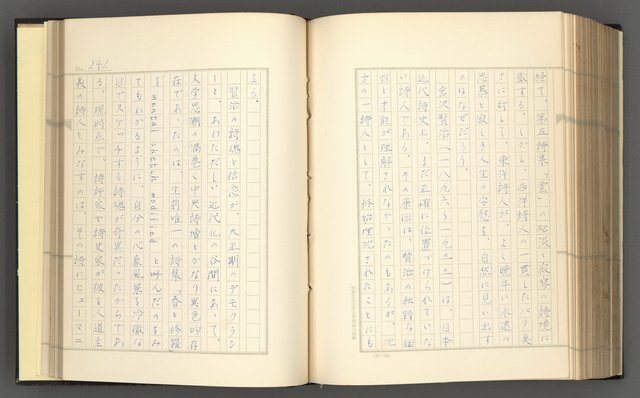 経て、第五詩集「雲」の沈寂の詩境に
散する。しかし、西洋詩人の一貫した
さに対して、東洋詩人が、よく晩年に永遠の
思慕と寂しき人生の安慰を、自然に見い出す
のはなぜだろう。
宮沢賢治（一八九六〜一九三三）は、日本
近代詩史上、まだ正確に位置づけられていな
い詩人である。その原因は、賢治の独特な個
性と才能が理解されなかったのもあるが、地
方の一詩人として、終始埋没されたことにも
No. 242
よる。
賢治の詩魂と信念が、大正期のデモクラシ
ーと、あわただしい近代化の谷間にあって、
文学思潮の渦巻く中央詩壇とかなり異色的存
在であったのは、生前唯一の詩集「春と修羅」
を mental sketch modified と呼んだのをみ
てもわかるように、自分の心象風景を冷徹な
目でスケッチする詩魂が奇異だったからであ
る。現時点で、詩評家や詩史家が彼を人道主
義の詩人とみなすのは、その詩にヒューマニ